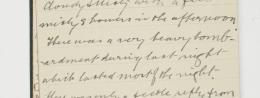 Cloudy & misty with a f
misty & bombs in the afternoon
There was a very heavy bomb-
ardment during last night
which lasted most of the night.
a little rifle from